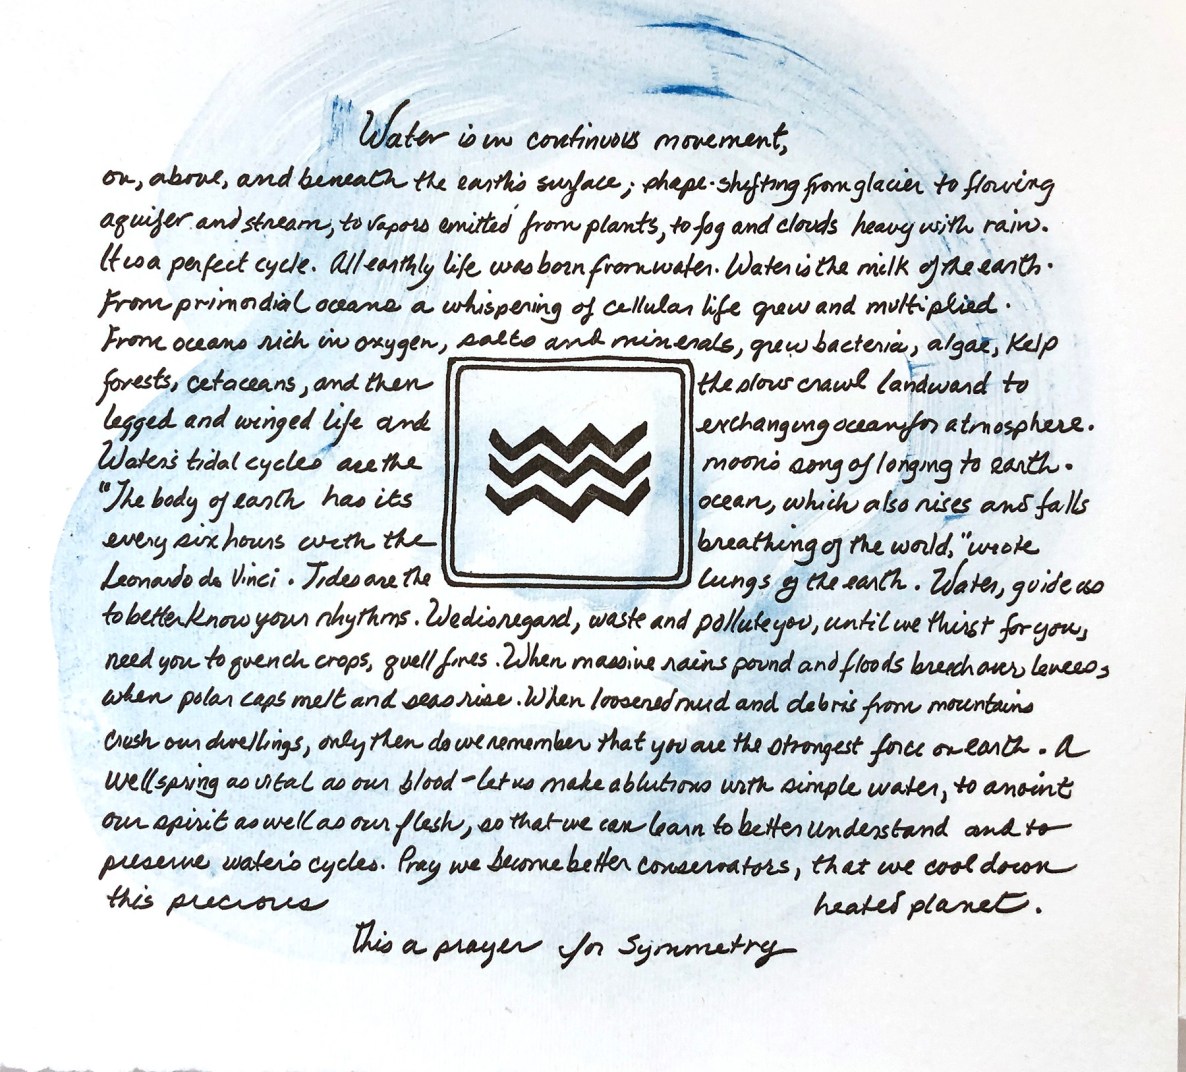 Water is in continuous movement,
on, above, and beneath the earth's surface; shape-shifting from glacier to flowing
aquifer and stream, to vapors emitted from plants, to fog and clouds heavy with rain.
It is a perfect cycle. All earthly life was born from water. Water is the milk of the earth.
From primordial oceans a whispering of cellular life grew and multiplied.
From oceans rich in oxygen, salts and minerals, grew bacteria, algae, kelp
forests, cetaceans, and then the slow crawl landward to
legged and winged life and exchanging ocean for atmosphere.
Water's tidal cycles are the moon's song of longing to earth.
"The body of earth has its ocean, which also rises and falls
every six hours with the breathing of the world," wrote
Leonardo da Vinci. Tides are the lungs of the earth. Water, guide us
to better know your rhythms. We disregard, waste and pollute you, until we thirst for you,
need you to quench crops, quell fires. When massive rains pound and floods breach our levees,
when polar caps melt and seas rise. When loosened mud and debris from mountains
crush our dwellings, only then do we remember that you are the strongest force on earth. A
wellspring as vital as our blood – let us make ablutions with simple water, to anoint
our spirit as well as our flesh, so that we can learn to better understand and to
preserve water's cycles. Pray we become better conservators, that we cool down
this precious heated planet.
This a prayer for Symmetry